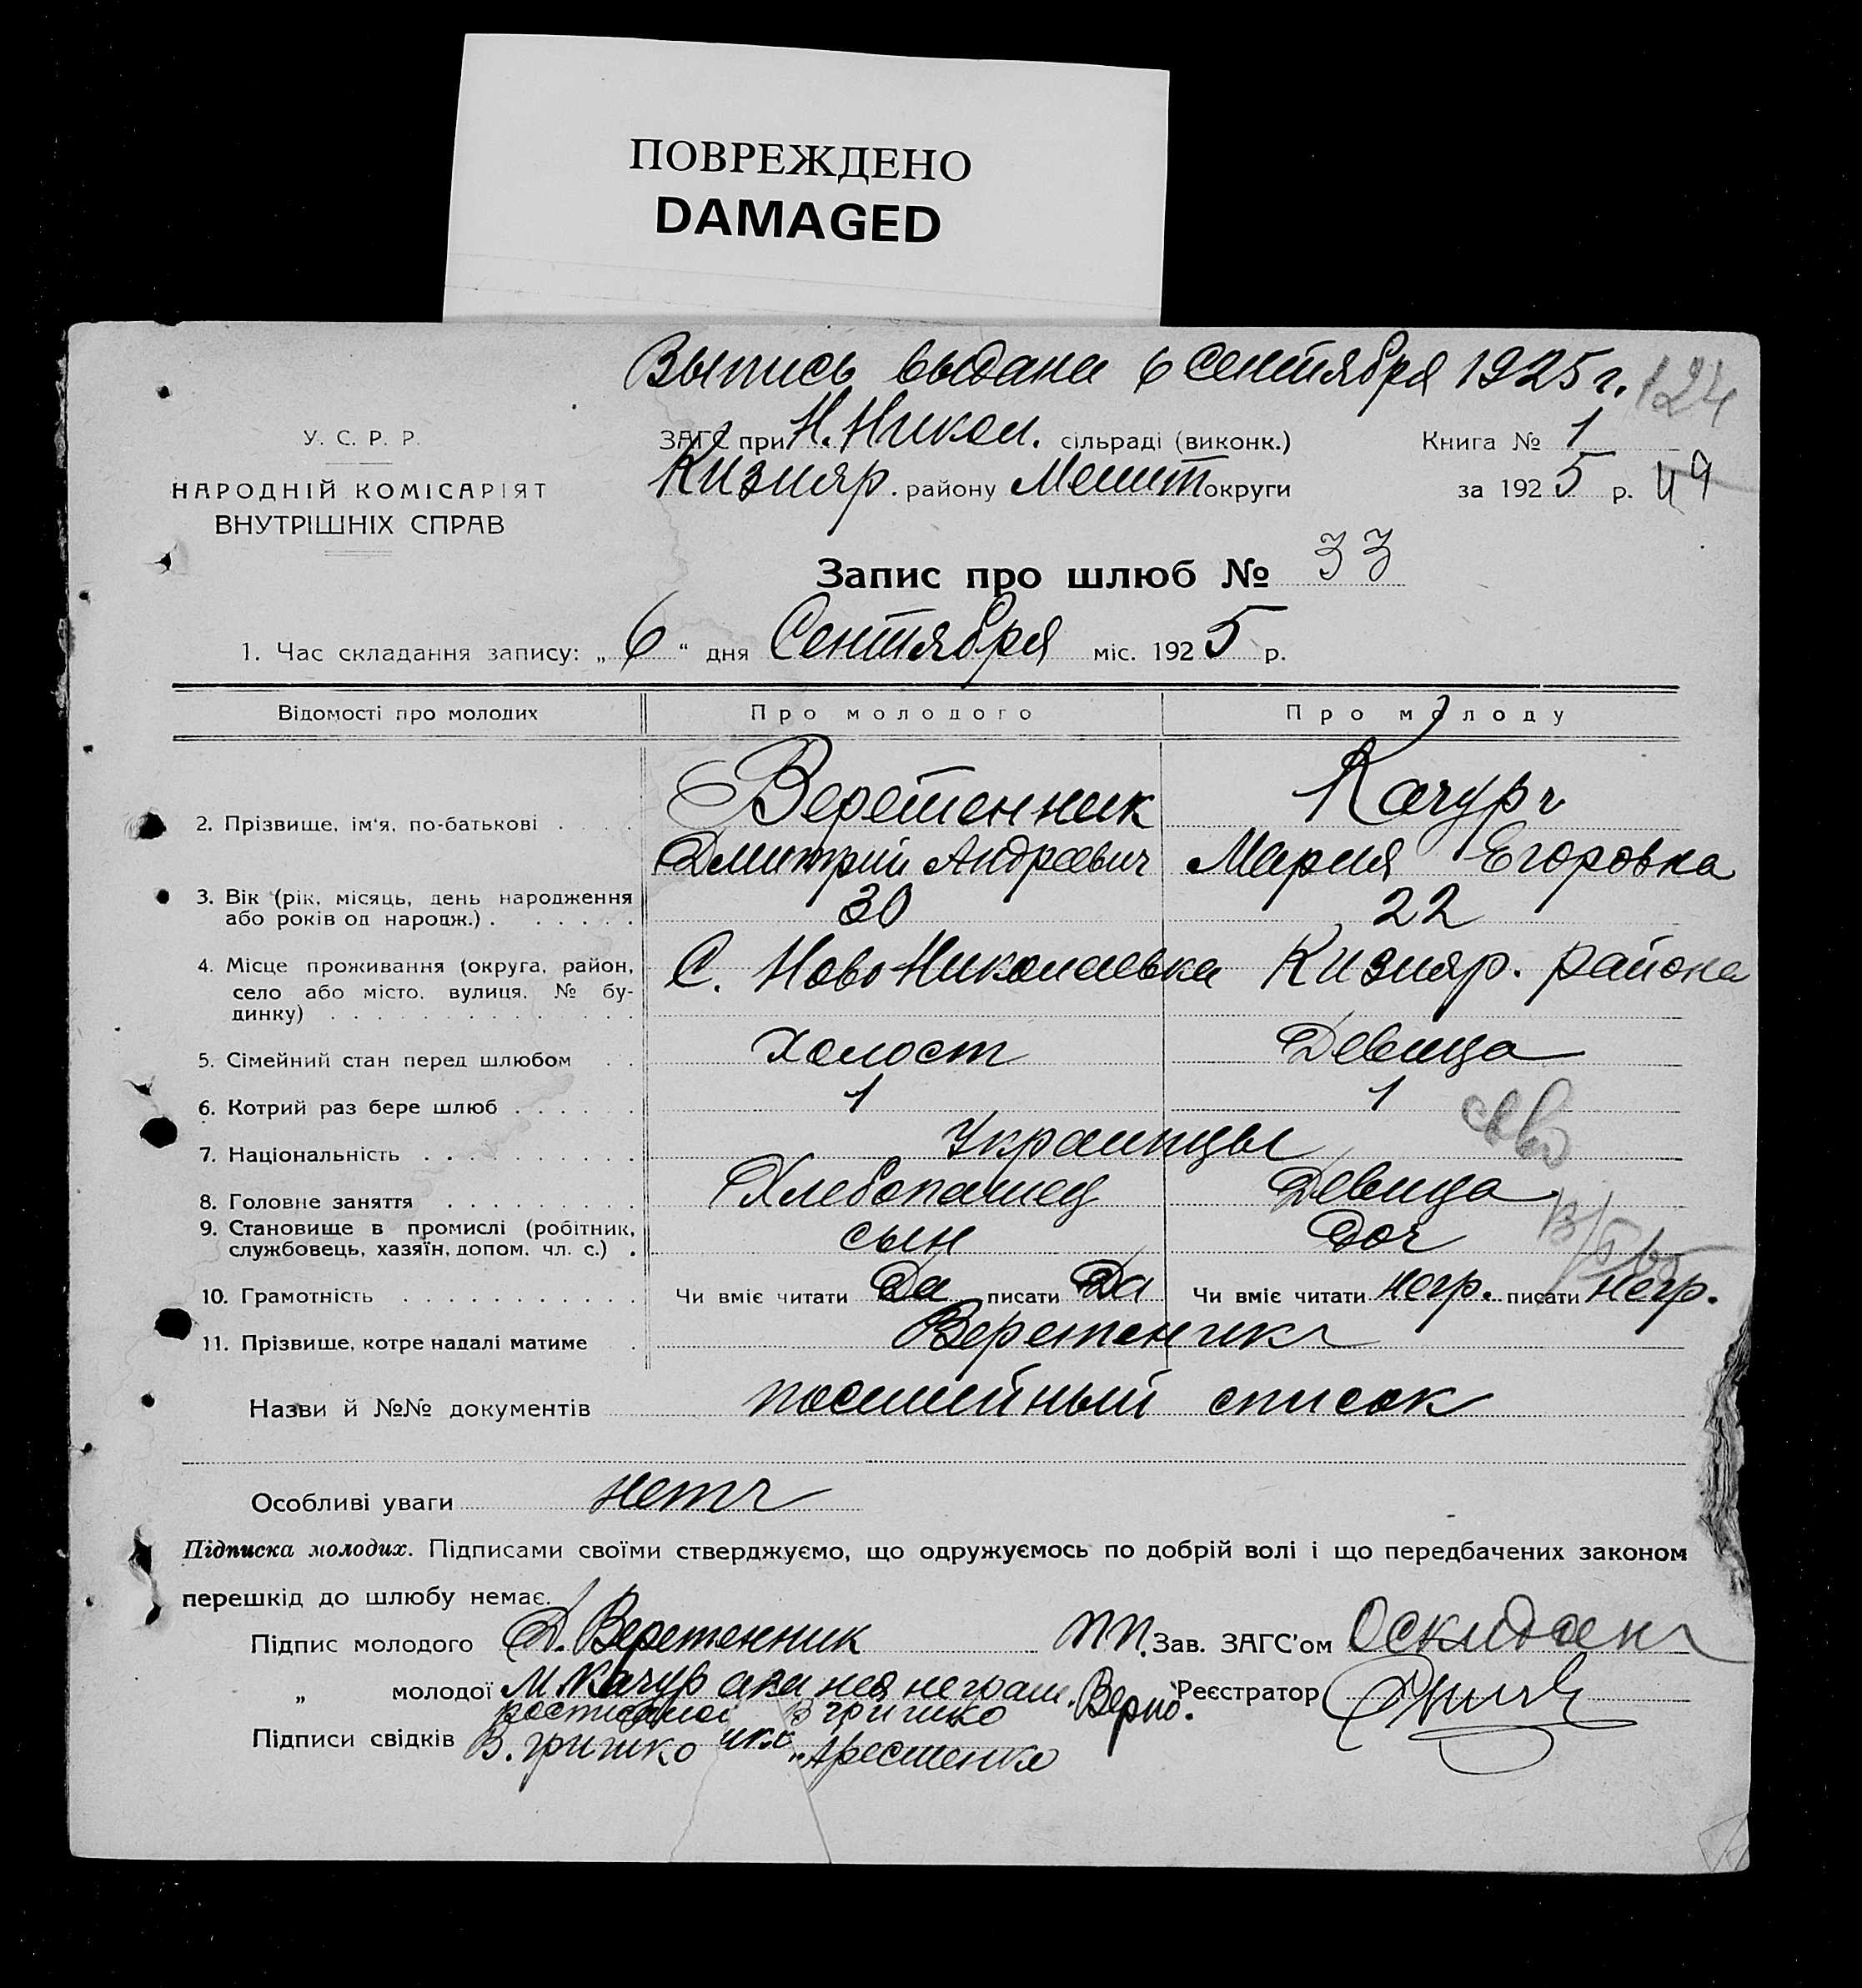 ПОВРЕЖДЕНО
DAMAGED
Выпись выдана 6 Сентября 1925 г. 124
У. С. Р. Р.
НАРОДНІЙ КОМІСАРІЯТ
ВНУТРІШНІХ СПРАВ
ЗАГС при Н. Никол. сільраді (виконк.)
Книга № 1
Кизияр. району Мелит округи
за 1925 р. 49
Запис про шлюб № 33
1. Час складання запису: „ 6 “ дня Сентября міс. 1925 р.
Відомості про молодих Про молодого Про молоду
2. Прізвище, ім'я, по-батькові . . . . Веретенник Качуръ
Дмитрий Андреевич Мария Егоровна
3. Вік (рік, місяць, день народження
або років од народж.) . . . . . . 30 22
4. Місце проживання (округа, район, С. Ново Николаевка Кизияр. района
село або місто, вулиця, № бу-
динку) . . . . . . . . . . . . . .
5. Сімейний стан перед шлюбом . . Холост Девица
6. Котрий раз бере шлюб . . . . . . 1 1
7. Національність . . . . . . . . . . Украинцы
8. Головне заняття . . . . . . . . . Хлебопашец Девица
9. Становище в промислі (робітник,
службовець, хазяїн, допом. чл. с.) . сын доч
10. Грамотність . . . . . . . . . . . Чи вміє читати Да писати Да Чи вміє читати негр. писати негр.
11. Прізвище, котре надалі матиме . Веретеникъ
Назви й №№ документів посимейный список
Особливі уваги нетъ
Підписка молодих. Підписами своїми стверджуємо, що одружуємось по добрій волі і що передбачених законом
перешкід до шлюбу немає.
Підпис молодого Д. Веретенник п.п. Зав. ЗАГС'ом
„ молодої М. Качур а за нея неграм. Верно. Реєстратор
В гришко
Підписи свідків В. гришко